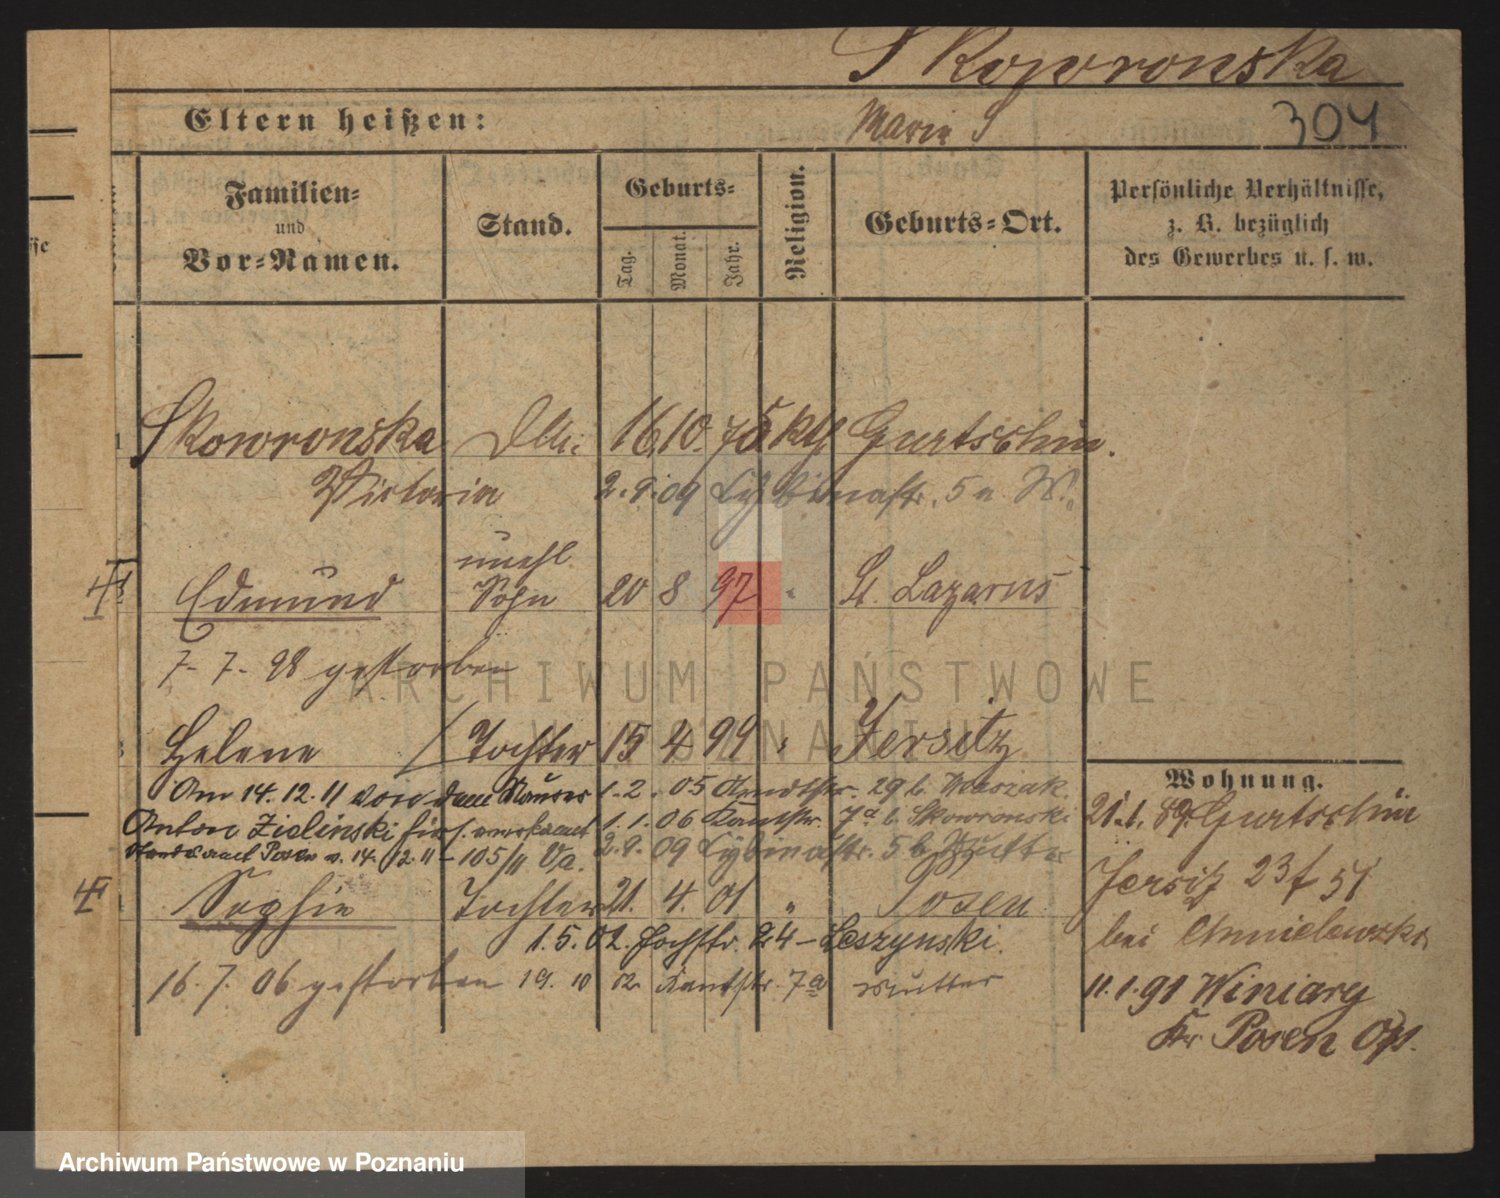 Skowronska
Eltern heißen:
Marie S
304
Familien-
und
Vor-Namen.
Stand.
Geburts-
Tag.
Monat.
Jahr.
Religion.
Geburts-Ort.
Persönliche Verhältnisse,
z. B. bezüglich
des Gewerbes u. s. w.
Skowronska 16. 10. 75 kth Gurtschin.
Victoria 2. 9. 09 Cybinastr. 5a W.
unehl.
Edmund Sohn 20 8 97 " St. Lazarus
7. 7. 98 gestorben
Helene Tochter 15 4 99 " Jersitz
Am 14. 12. 11 von dem Maurer 1. 2. 05 29 b.
Anton Zielinski 1. 1. 06 Kantstr. 7a b. Skowronski
Standesamt Posen v. 14. 12. 11 - 105/11 Va. 2. 9. 09 Cybinastr. 5 b. Mutter
Sophie Tochter 21. 4. 01 " Posen
1. 5. 02. Hochstr. 24 - Leszynski.
16. 7. 06 gestorben 19. 10 02 Kantstr. 7a Mutter
Wohnung.
21. 1. 89. Gurtschin
Jersitz 23 f 51
bei Chmielewska
11. 1. 91 Winiary
Kr Posen Ost.
ARCHIWUM PAŃSTWOWE
W POZNANIU
Archiwum Państwowe w Poznaniu